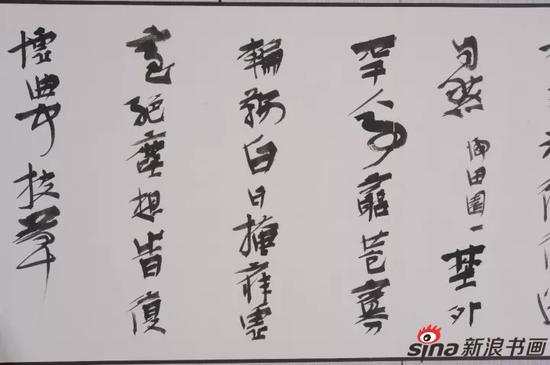 自然 歸田園一 埜外
罕人事窮巷寡
輪鞅白日掩荊扉虛
室絕塵想旹復
墟曲中披草
sina 新浪书画